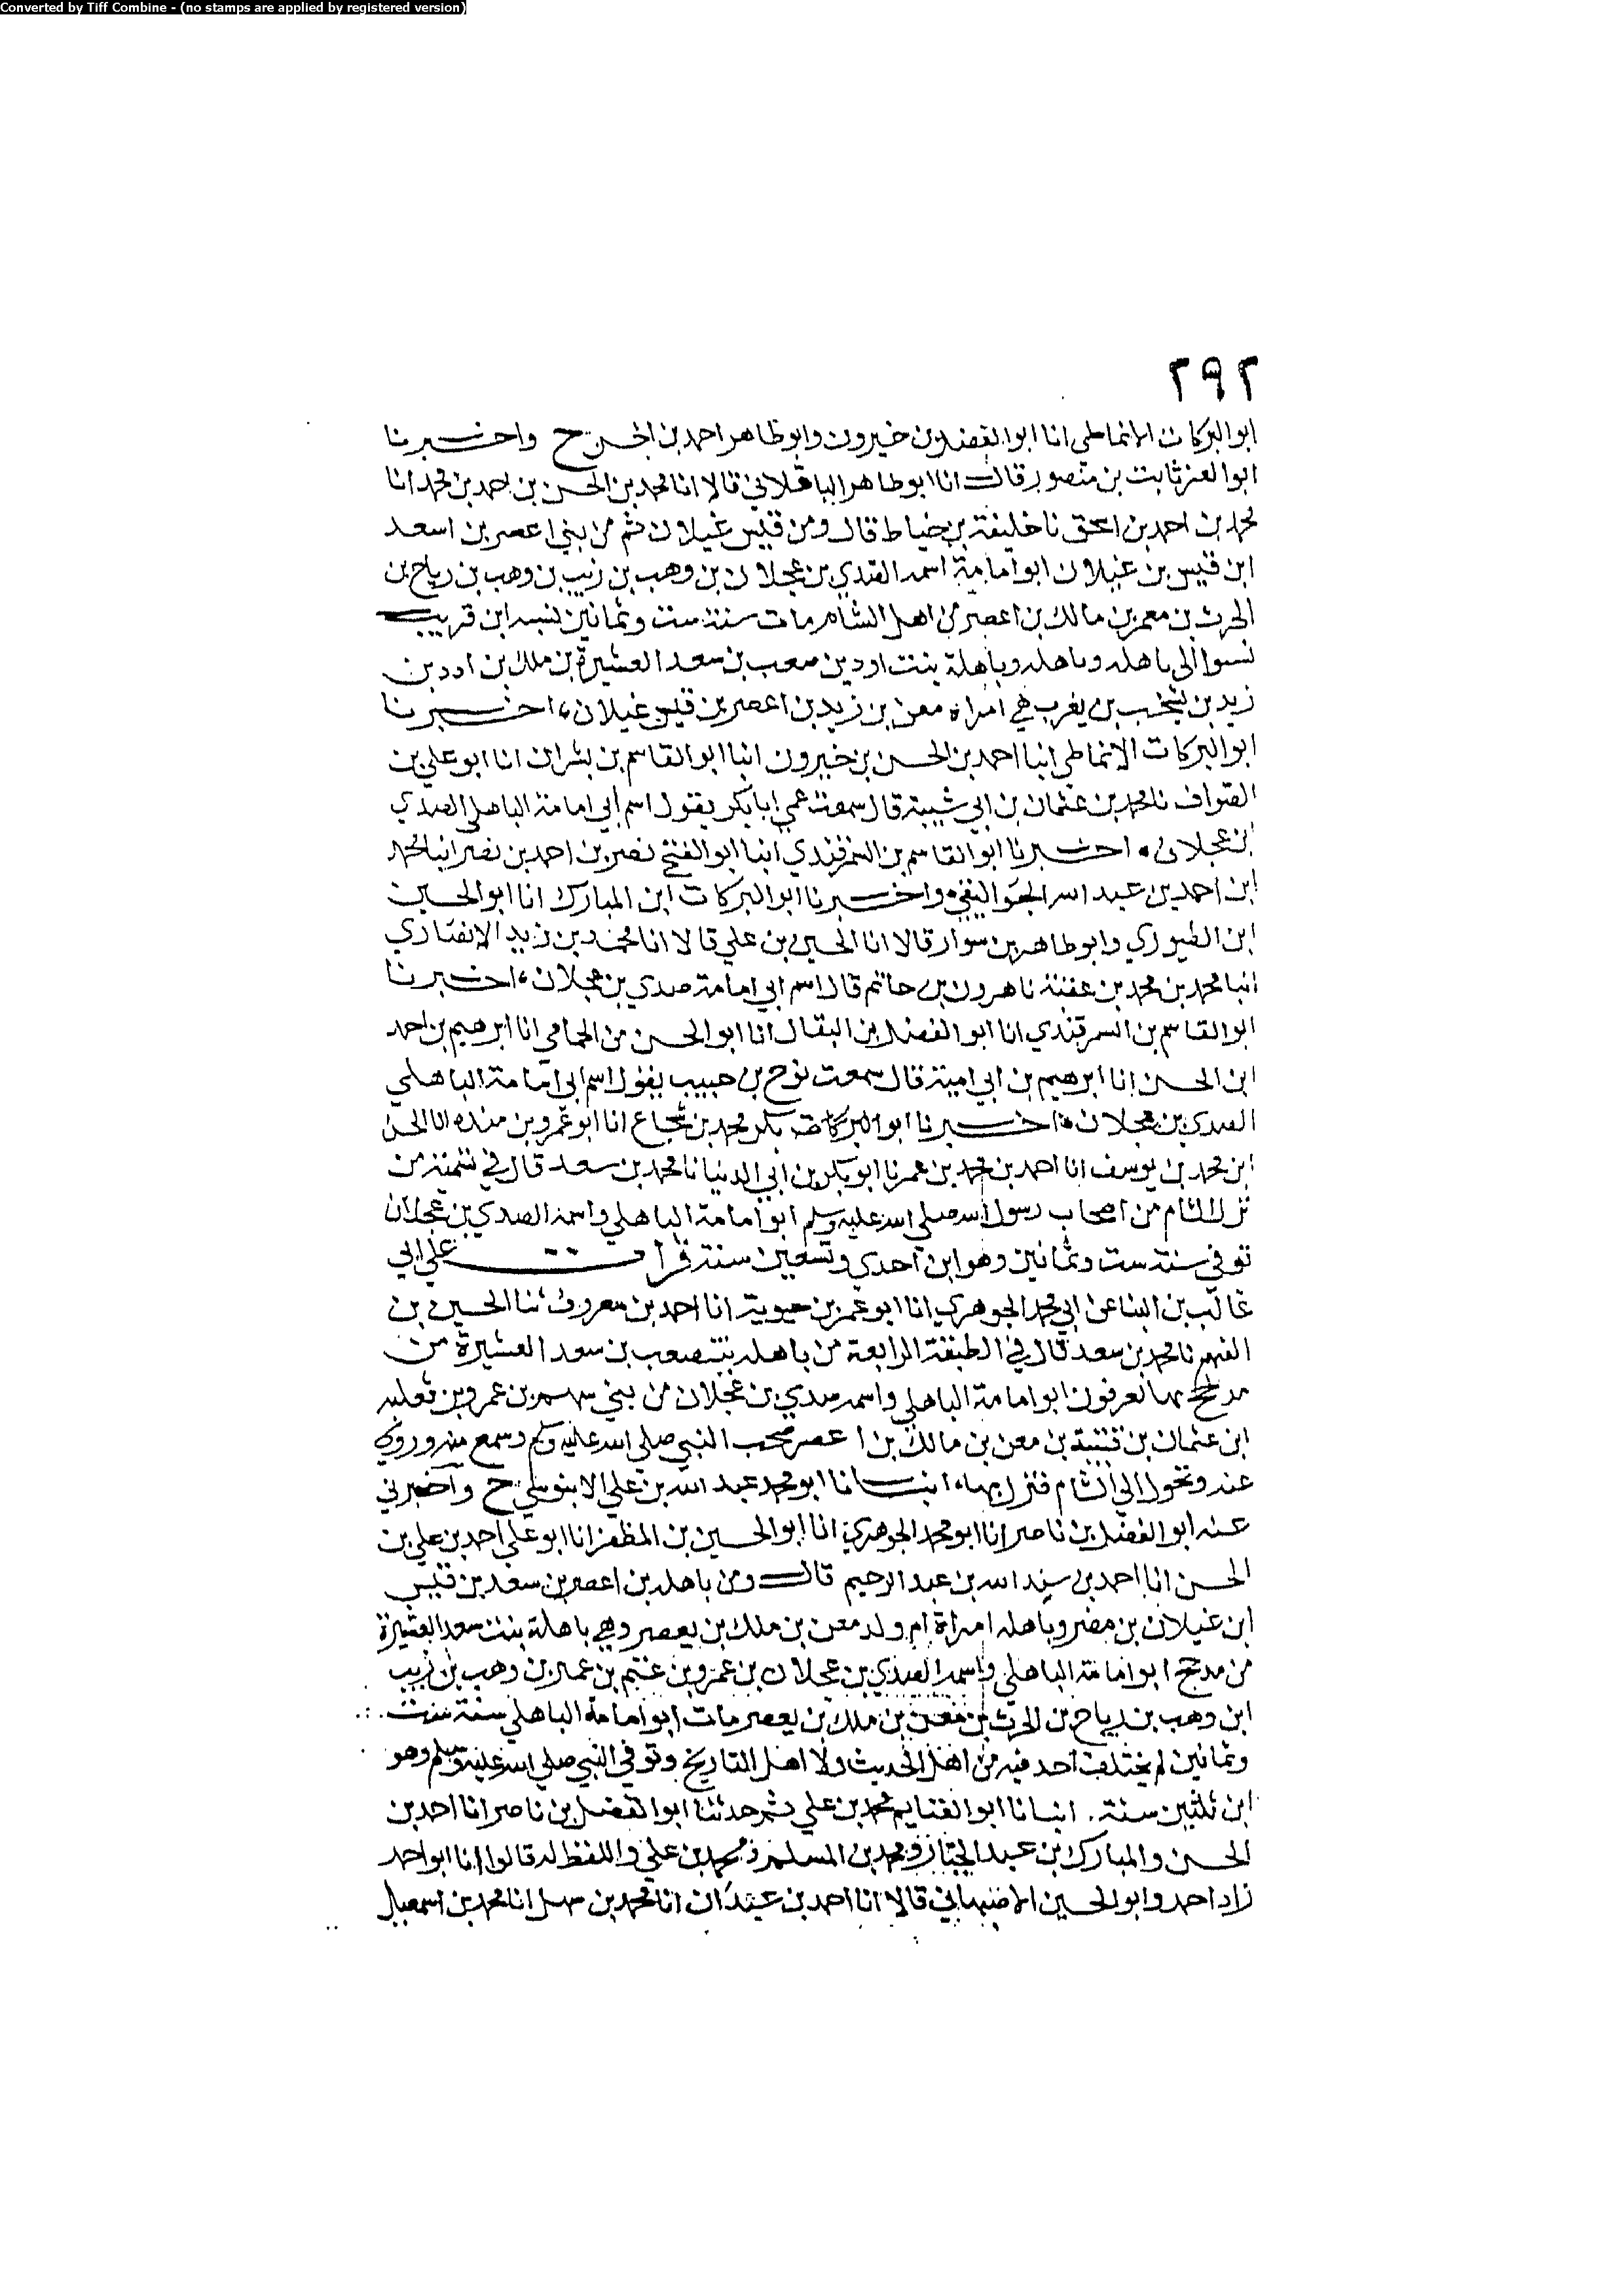 Converted by Tiff Combine - (no stamps are applied by registered version)
٢٩٢
ابو البركات الانماطي انا ابو الفضل بن خيرون وابو ظاهر احمد بن الحسن ح واخبرنا
ابو العز ثابت بن منصور قال انا ابو طاهر الباقلاني قالا انا محمد بن الحسن بن احمد بن محمد انا
محمد بن احمد بن اسحق نا خليفة بن خياط قال ومن قيس غيلان ثم من بني اعصر بن اسعد
ابن قيس بن غيلان ابو امامة اسمه الصدي بن عجلان بن وهب بن زبيب بن وهب بن رياح بن
الحرث بن معمر بن مالك بن اعصر من اهل الشام مات سنة ست وثمانين نسبه ابن قريب
نسبوا الى باهله وباهله وباهلة بنت اود بن صعب بن سعد العشيرة بن ملك بن ادد بن
زيد بن يشخب بن يغرب هي امراة معن بن زيد بن اعصر بن قيس غيلان، اخبرنا
ابو البركات الانماطي انبا احمد بن الحسن بن خيرون انبا ابو القاسم بن بشران انا ابو علي بن
الصواف نا محمد بن عثمان بن ابي شيبة قال سمعت عمي ابا بكر يقول اسم ابي امامة الباهلي الصدي
بن عجلان، اخبرنا ابو القاسم بن السمرقندي انبا ابو الفتح نصر بن احمد بن نصر انبا محمد
ابن احمد بن عبد الله الجواليقي، واخبرنا ابو البركات ابن المبارك انا ابو الحسين
ابن الطيوري وابو طاهر بن سوار قالا انا الحسين بن علي قالا انا محمد بن زيد الانصاري
انبا محمد بن محمد بن عقبة نا هرون بن حاتم قال اسم ابي امامة صدي بن عجلان، اخبرنا
ابو القاسم بن السمرقندي انا ابو الفضل بن البقال انا ابو الحسن من الحمامي انا ابرهيم بن احمد
ابن الحسن انا ابرهيم بن ابي امية قال سمعت نوح بن حبيب يقول اسم ابي امامة الباهلي
الصدي بن عجلان، اخبرنا ابو البركات بكر محمد بن شجاع انا ابو عمرو بن منده انا الحسن
ابن محمد بن يوسف انا احمد بن محمد بن عمر نا ابو بكر بن ابي الدنيا نا محمد بن سعد قال في تسمية من
نزل الشام من اصحاب رسول الله صلى الله عليه وسلم ابو امامة الباهلي واسمه الصدي بن عجلان
توفي سنة ست وثمانين وهو ابن احدي وتسعين سنة قرات على ابي
غالب بن البنا عن ابي محمد الجوهري انا ابو عمر بن حيوية انا احمد بن معروف ثنا الحسين بن
الفهم نا محمد بن سعد قال في الطبقة الرابعة من باهله بنت صعب بن سعد العشيرة من
مدلج بها تعرفون ابو امامة الباهلي واسمه صدي بن عجلان من بني سهم بن عمرو بن ثعلبه
ابن عثمان بن قتيبة بن معن بن مالك بن اعصر صحب النبي صلى الله عليه وسلم وسمع منه وروي
عنه وتحول الي الشام فنزل بها، انبانا ابو محمد عبد الله بن علي الابنوسي ح واخبرني
عنه ابو الفضل بن ناصر انا ابو محمد الجوهري انا ابو الحسين بن المظفر انا ابو علي احمد بن علي بن
الحسن انا احمد بن عبد الله بن عبد الرحيم قال ومن باهله بن اعصر بن سعد بن قيس
ابن غيلان بن مضر وباهله امراة ام ولد معن بن ملك بن يعصر وهي باهلة بنت سعد العشيرة
من مدحج ابو امامة الباهلي واسمه الصدي بن عجلان بن عمرو بن غنيم بن عمار بن وهب بن زبيب
ابن وهب بن رياح بن الحرث بن معن بن ملك بن يعصر مات ابو امامة الباهلي سنة ست
وثمانين لم يختلف احد فيه من اهل الحديث ولا اهل التاريخ وتوفي النبي صلى الله عليه وسلم وهو
ابن ثلثين سنة. انبانا ابو الغنايم محمد بن علي ثم حدثنا ابو الفضل بن ناصر انا احمد بن
الحسن والمبارك بن عبد الجبار ومحمد بن المسلم ومحمد بن علي واللفظ له قالوا انا ابو احمد
زاد احمد وابو الحسين الاصبهاني قالا انا احمد بن عبدان انا محمد بن سهل انا محمد بن اسمعيل